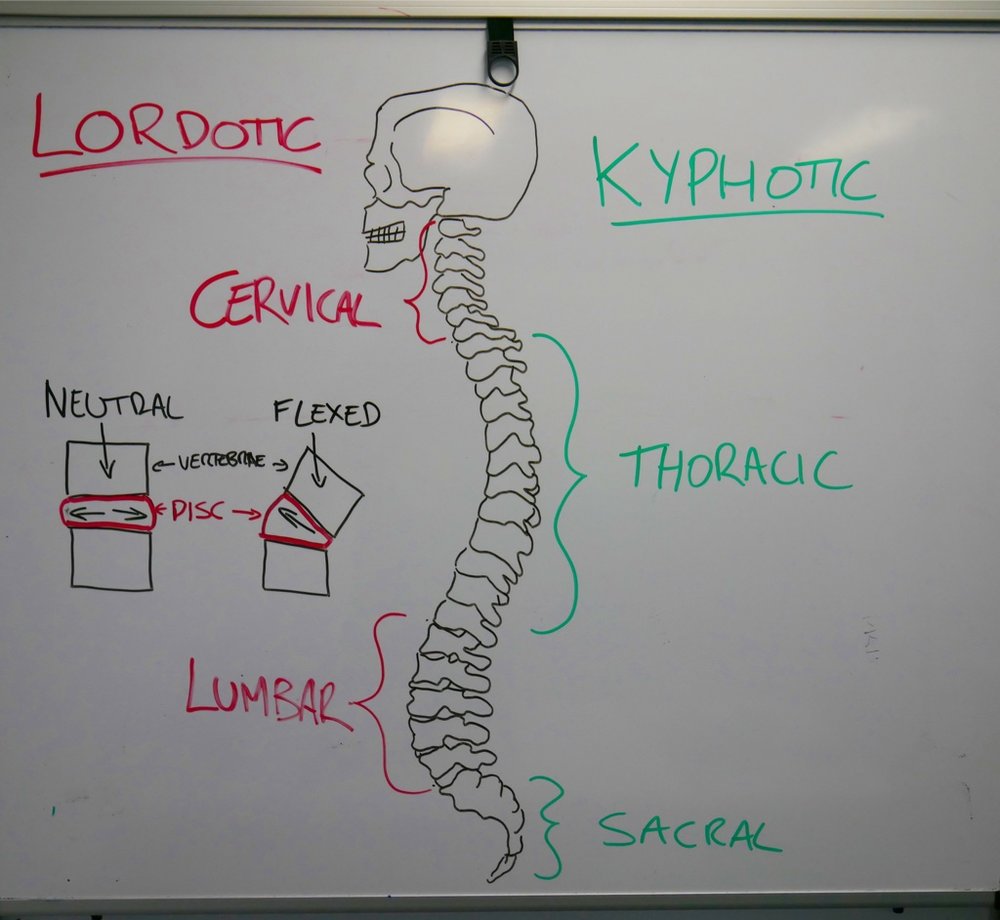 LORDOTIC
KYPHOTIC
CERVICAL
NEUTRAL
FLEXED
VERTEBRAE
DISC
THORACIC
LUMBAR
SACRAL